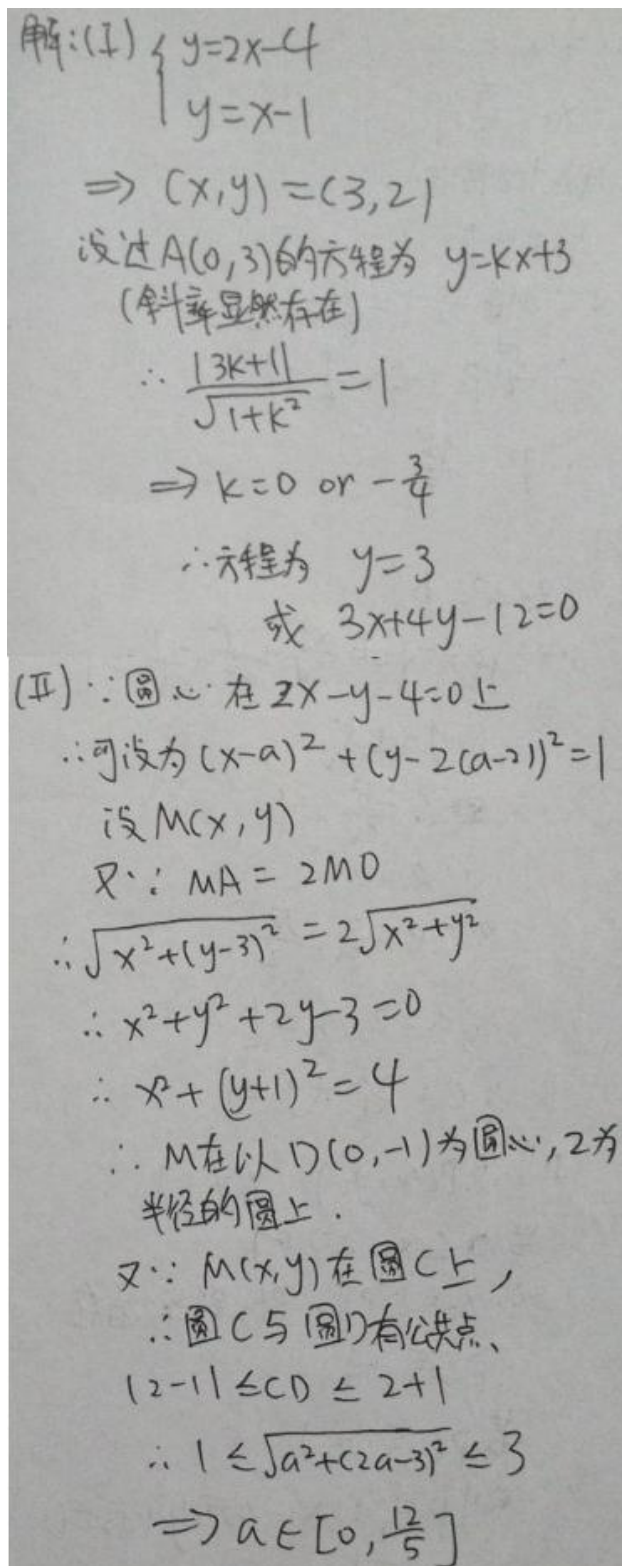 解:(I) { y=2x-4
y=x-1
⇒ (x,y)=(3,2)
设过A(0,3)的方程为 y=kx+3
(斜率显然存在)
∴ |3k+1|/√(1+k²) =1
⇒ k=0 or -3/4
∴方程为 y=3
或 3x+4y-12=0
(II) ∵圆心在2x-y-4=0上
∴可设为(x-a)²+(y-2(a-2))²=1
设M(x,y)
又∵ MA=2MO
∴√(x²+(y-3)²) =2√(x²+y²)
∴ x²+y²+2y-3=0
∴ x²+(y+1)²=4
∴ M在以D(0,-1)为圆心,2为
半径的圆上.
又∵ M(x,y)在圆C上,
∴圆C与圆D有公共点、
|2-1|≤CD≤2+1
∴ 1≤√(a²+(2a-3)²)≤3
⇒ a∈[0,12/5]